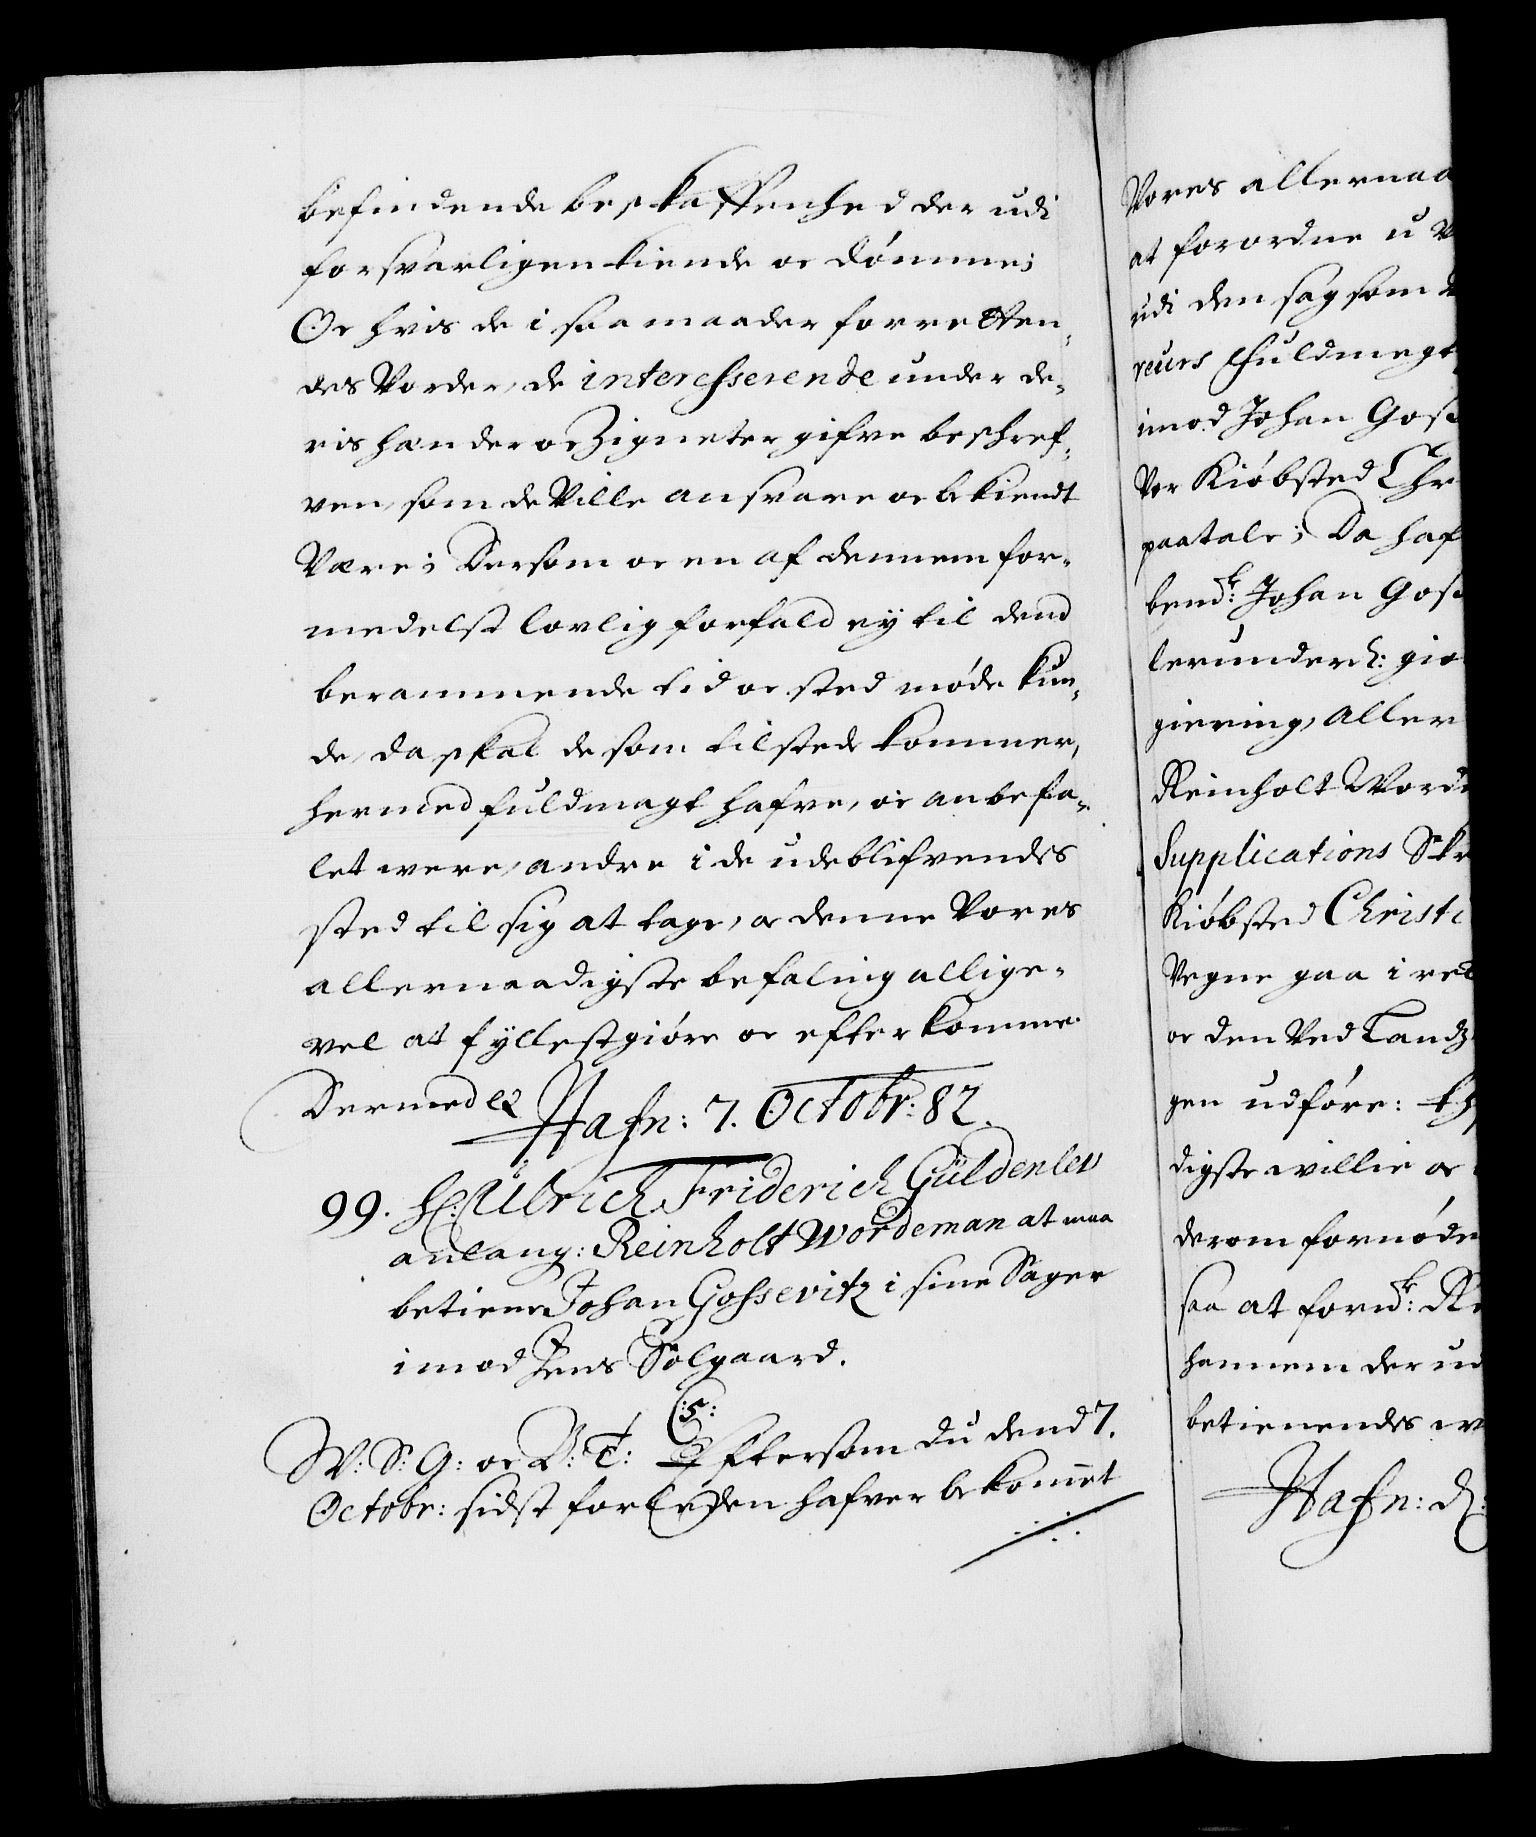 befindende beskaffenhed der udi
forsvarligen kiende oc dømme;
Oc hvis de i saa maader forretten-
des Vorder, de interesserende under de-
ris hænder oc Zigneter gifve beschref-
ven, som de Ville ansvare oc bekiendt
Være; Dersom oc en af dennem for-
medelst lovlig forfald ey til dend
berammende tid oc sted møde kun-
de, da skal de som tilstede kommer,
hermed fuldmagt hafve, oc anbefa-
let were, andre i de udeblifvendes
sted til sig at tage, oc denne Vores
allernaadigste befaling allige-
vel at fyllestgiøre oc efterkomme
Dermed etc Hafn: 7. Octobr: 82.
99. H: Ulrich Friderich Güldenlev
anlang: Reinholt Wordeman at maa
betiene Johan Gossevitz i sine Sager
imod Jens Solgaard.
C:5:
W: S: G: oc V: T: Eftersom du dend 7.
Octobr: sidst forleden hafver bekommet
Vores allernaa
at forordne u V
udi den sag som
reurs fuldmegt
imod Johan Goss
Vor Kiøbsted Chr
paatale; Da haf
bemd.te Johan Goss
lerunderd: gi
giering, aller
Reinholt Word
Supplications Skr
Kiøbsted Christi
Vegne gaa i ret
oc den Ved Landz
gen udføre: th
digste willie oc
derom fornøde
saa at fornd.te Re
hannem der ud
betienendes w
Hafn: d: